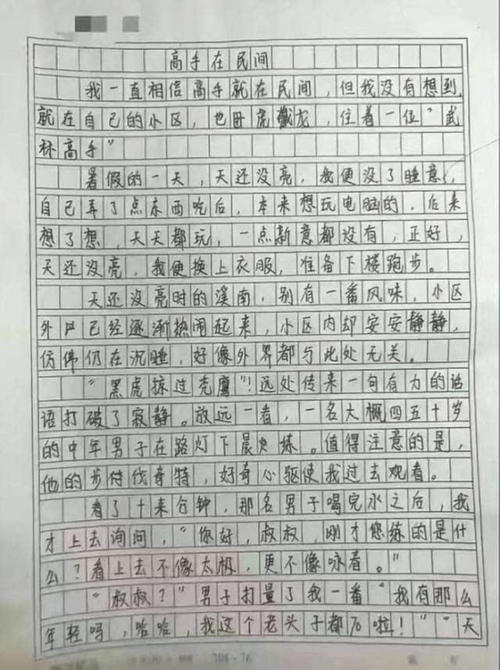 高手在民间
我一直相信高手就在民间，但我没有想到，
就在自己的小区，也卧虎藏龙，住着一位“武
林高手”
暑假的一天，天还没亮，我便没了睡意，
自己弄了点东西吃后，本来想玩电脑的，后来
想了想，天天都玩，一点新意都没有，正好，
天还没亮，我便换上衣服，准备下楼跑步。
天还没亮时的溪南，别有一番风味，小区
外户已经逐渐热闹起来，小区内却安安静静，
仿佛仍在沉睡，好像外界都与此处无关。
“黑虎掠过秃鹰”！远处传来一句有力的话
语打破了寂静。放远一看，一名大概四五十岁
的中年男子在路灯下晨炼。值得注意的是，
他的步付伐奇特，好奇心驱使我过去观看。
看了十来分钟，那名男子喝完水之后，我
才上去询问，“你好，叔叔，刚才您练的是什
么？看上去不像太极，更不像咏春。”
“叔叔？”男子打量了我一番“我有那么
年轻吗，哈哈，我这个老头子都70啦！”“天